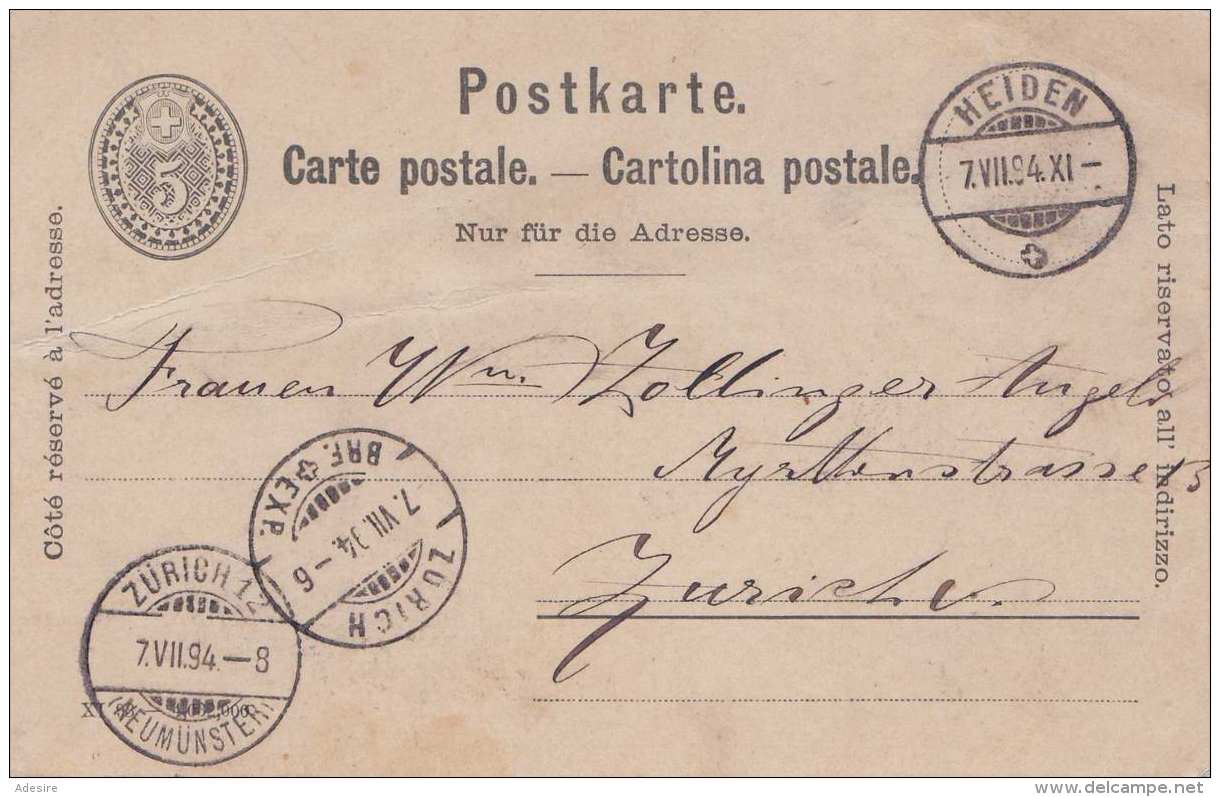 Postkarte.
Carte postale. — Cartolina postale.
Nur für die Adresse.
5
HEIDEN
7.VII.94.XI–
Côté réservé à l'adresse.
Lato riservato all' indirizzo.
Frauen Wm. Zollinger Angela
Myrthenstrasse 13
Zürich.
ZÜRICH
7.VII.94.–6
BRF. EXP.
ZÜRICH 12
7.VII.94.–8
(NEUMÜNSTER)
Adesire
www.delcampe.net